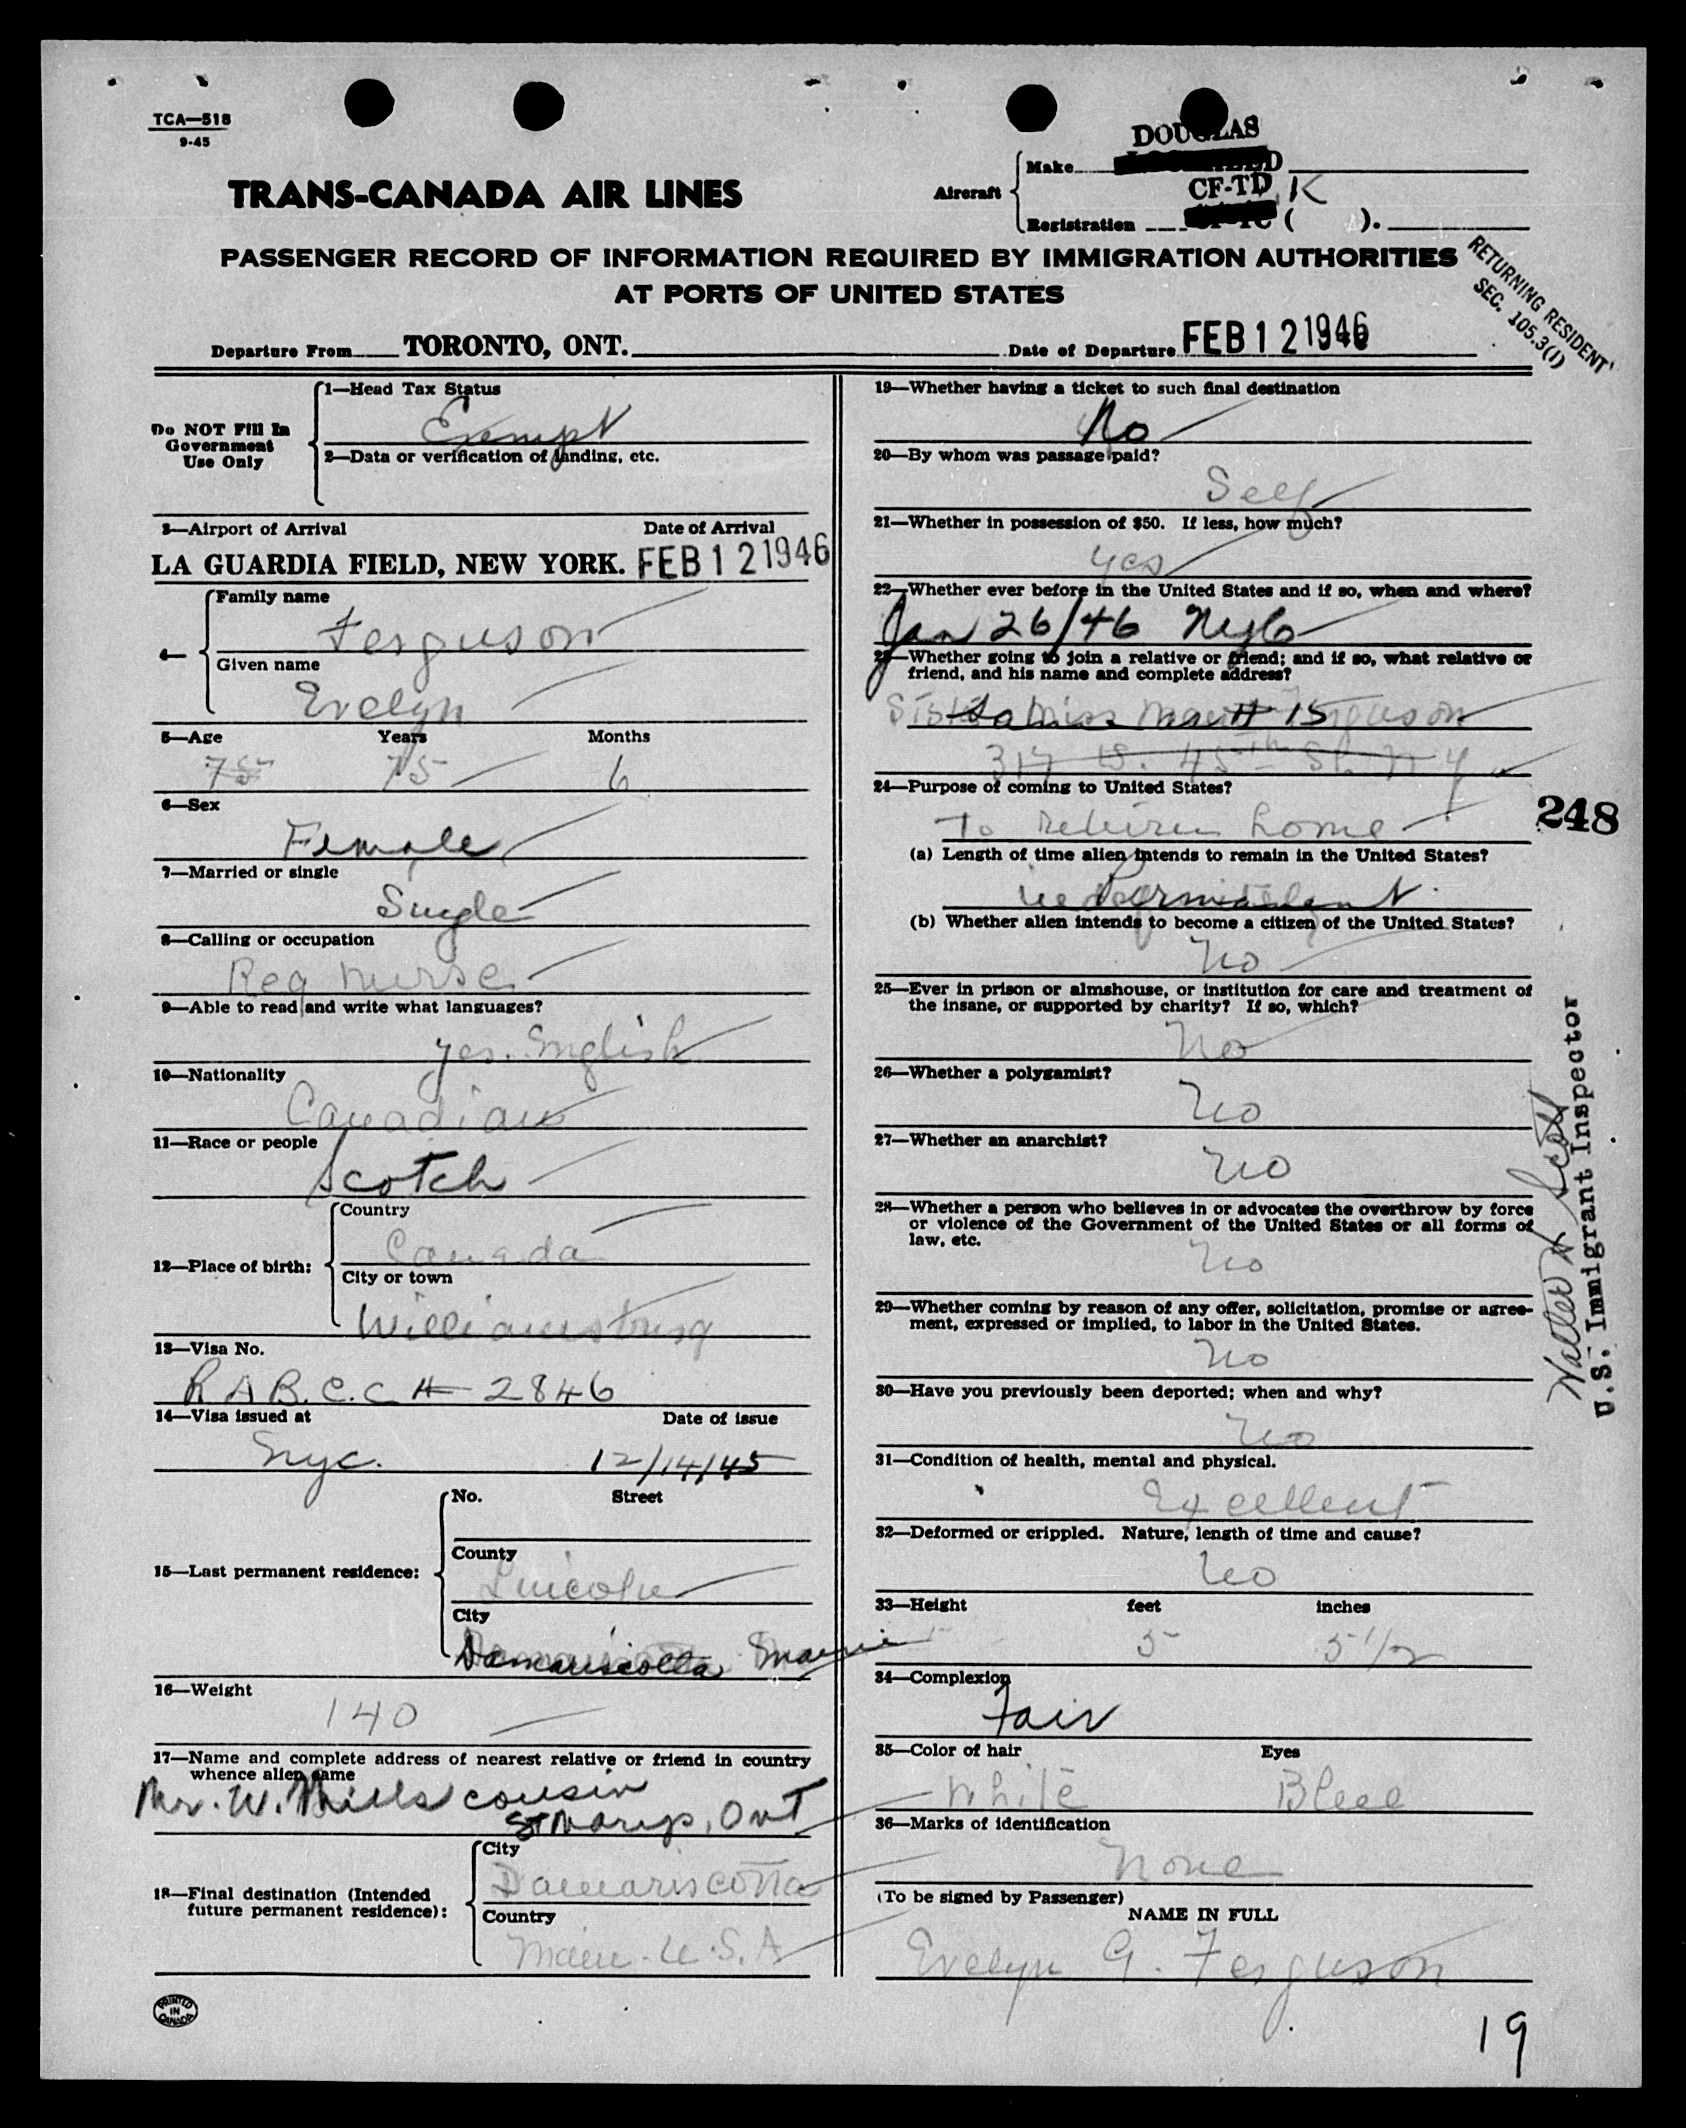 TCA—518
9-45
DOUGLAS
Make
TRANS-CANADA AIR LINES
Aircraft
CF-TD K
Registration ( ).
PASSENGER RECORD OF INFORMATION REQUIRED BY IMMIGRATION AUTHORITIES
AT PORTS OF UNITED STATES
RETURNING RESIDENT
SEC. 105.3(1)
Departure From TORONTO, ONT. Date of Departure FEB 12 1946
Do NOT Fill In
Government
Use Only
1—Head Tax Status
Exempt
2—Data or verification of landing, etc.
3—Airport of Arrival Date of Arrival
LA GUARDIA FIELD, NEW YORK. FEB 12 1946
4—
Family name
Ferguson
Given name
Evelyn
5—Age Years Months
75 75 6
6—Sex
Female
7—Married or single
Single
8—Calling or occupation
Reg nurse
9—Able to read and write what languages?
yes. English
10—Nationality
Canadian
11—Race or people
Scotch
12—Place of birth:
Country
Canada
City or town
Williamsburg
13—Visa No.
RABC.C # 2846
14—Visa issued at Date of issue
nyc. 12/14/45
15—Last permanent residence:
No. Street
County
Lincoln
City
Damariscotta Maine
16—Weight
140
17—Name and complete address of nearest relative or friend in country
whence alien came
Mr. W. Mills cousin
St Marys, Ont
18—Final destination (Intended
future permanent residence):
City
Damariscotta
Country
Maine-U.S.A
PRINTED
IN
CANADA
19—Whether having a ticket to such final destination
No
20—By whom was passage paid?
Self
21—Whether in possession of $50. If less, how much?
yes
22—Whether ever before in the United States and if so, when and where?
Jan 26/46 NYC
23—Whether going to join a relative or friend; and if so, what relative or
friend, and his name and complete address?
Miss # 15
317 W. 45th St. N Y
24—Purpose of coming to United States?
To return home
248
(a) Length of time alien intends to remain in the United States?
Permanent
(b) Whether alien intends to become a citizen of the United States?
No
25—Ever in prison or almshouse, or institution for care and treatment of
the insane, or supported by charity? If so, which?
No
26—Whether a polygamist?
No
27—Whether an anarchist?
No
28—Whether a person who believes in or advocates the overthrow by force
or violence of the Government of the United States or all forms of
law, etc.
No
29—Whether coming by reason of any offer, solicitation, promise or agree-
ment, expressed or implied, to labor in the United States.
No
30—Have you previously been deported; when and why?
No
31—Condition of health, mental and physical.
Excellent
32—Deformed or crippled. Nature, length of time and cause?
No
33—Height feet inches
5 5 1/2
34—Complexion
Fair
35—Color of hair Eyes
White Blue
36—Marks of identification
None
(To be signed by Passenger)
NAME IN FULL
Evelyn G. Ferguson
Walter H Scott
U.S. Immigrant Inspector
19